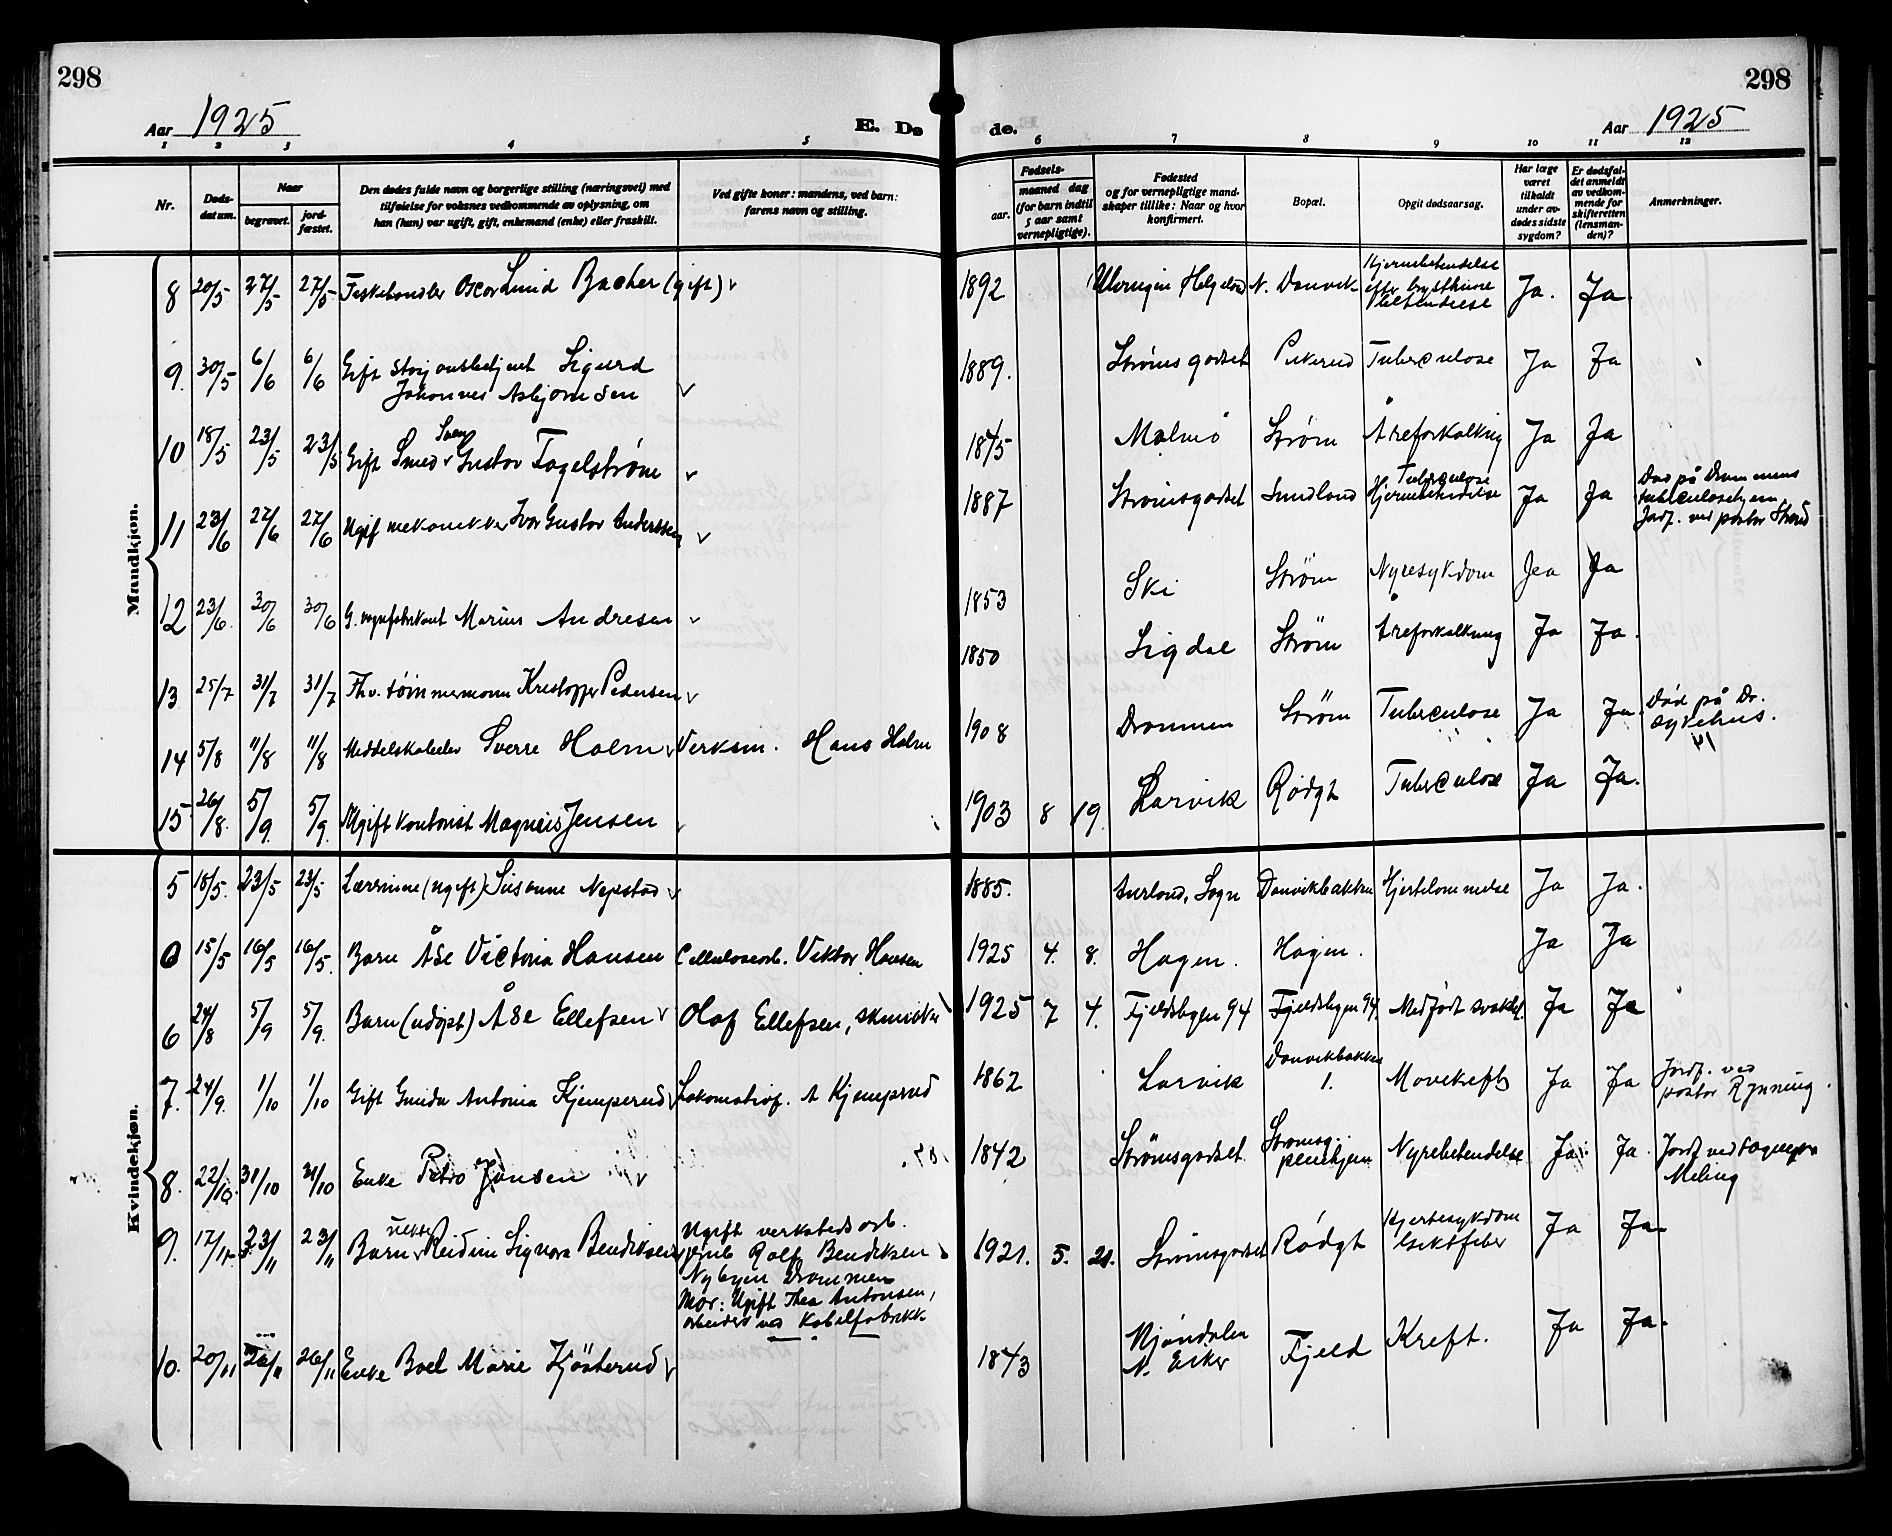 298
298
Aar 1925
E. Dø
de.
Aar 1925
1 2 3 4 5 6 7 8 9 10 11 12
Nr.
Døds-
datum.
Naar
begravet.
jord-
fæstet.
Den dødes fulde navn og borgerlige stilling (næringsvei) med
tilføielse for voksnes vedkommende av oplysning, om
han (hun) var ugift, gift, enkemand (enke) eller fraskilt.
Ved gifte koner: mandens, ved barn:
farens navn og stilling.
Fødsels-
aar.
maaned dag
(for barn indtil
5 aar samt
vernepligtige).
Fødested
og for vernepligtige mand-
skaper tillike: Naar og hvor
konfirmert.
Bopæl.
Opgit dødsaarsag.
Har læge
været
tilkaldt
under av-
dødes sidste
sygdom?
Er dødsfal-
det anmeldt
av vedkom-
mende for
skifteretten
(lensman-
den)?
Anmerkninger.
Mandkjøn.
8 20/5 27/5 27/5 Fiskehandler Oscar Bacher (gift) 1892 Helgeland N. Danvik Hjernebetendelse
efter brysthinne
betendelse Ja. Ja.
9. 30/5 6/6 6/6 Gift Sigurd
Johannes Asbjørnsen 1889. Strømsgodset Pukerud Tuberculose Ja Ja
10 18/5 23/5 23/5 Gift Smed Sven Gustav Fagelstrøm 1845 Malmö Strøm Åreforkalkning Ja Ja
11 23/6 27/6 27/6 Ugift mekanikker Ivar Gustav Anderssen 1887 Strømsgodset Sundland Tuberculose
Hjernebetendelse Ja Ja Død på Drammens
tuberculosehjem
Jordf. ved pastor Strand
12 23/6 30/6 30/6 G. vognfabrikant Marius Andresen 1853 Ski Strøm Nyresykdom Ja Ja
13 25/7 31/7 31/7 Fhv. tømmermann Kristoffer Pedersen 1850 Sigdal Strøm Åreforkalkning Ja Ja.
14 5/8 11/8 11/8 Middelskoleelev Sverre Holm Verksm. Hans Holm 1908 Drammen Strøm Tuberculose Ja Ja. Død på Dr.
sykehus.
15 26/8 5/9 5/9 Ugift kontorist Magnus Jensen 1903 8 19. Larvik Rødgt Tuberculose Ja Ja.
Kvindekjøn.
5 18/5 23/5 23/5 Lærerinne (ugift) Susanne Nypestad 1885. Aurland, Sogn Danvikbakken Hjertelammelse Ja Ja.
0 15/5 16/5 16/5. Barn Åse Victoria Hansen Cellulosearb. Viktor Hansen 1925 4. 8. Hagen. Hagen. Ja Ja
6 24/8 5/9 5/9. Barn (udøpt) Åse Ellefsen Olaf Ellefsen, 1925 7 4. Fjeldsbyen 94 Fjeldsbyen 94. Medfødt svakhet. Ja Ja
7. 24/9. 1/10 1/10 Gift Gunda Antonia Kjemperud Lokomotivf. A Kjemprud 1862 Larvik Danvikbakken
1. Mavekreft Ja Ja Jordf. ved
pastor Rynning.
8. 22/10. 31/10 31/10 Enke Petra Jonsen 1842 Strömsgodset Strømsg.
pleiehjem Nyrebetendelse Ja. Ja. Jordf. ved sognepr
Meling
9. 17/11 23/11 23/11 Barn uekte Reidun Signora Bendiksen Ugift verkstedsarb.
Rolf Bendiksen
Nybyen Drammen
Mor: Ugift Thea Antonsen,
arbeider ved Kabelfabrikk 1921. 5. 21. Strømsgodset Rødgt Hjertesykdom
Giktfeber Ja Ja
10. 20/11 26/11 26/11 Enke Boel Marie Kjösterud 1843 Mjøndalen
N. Eiker Fjeld Kreft. Ja Ja.